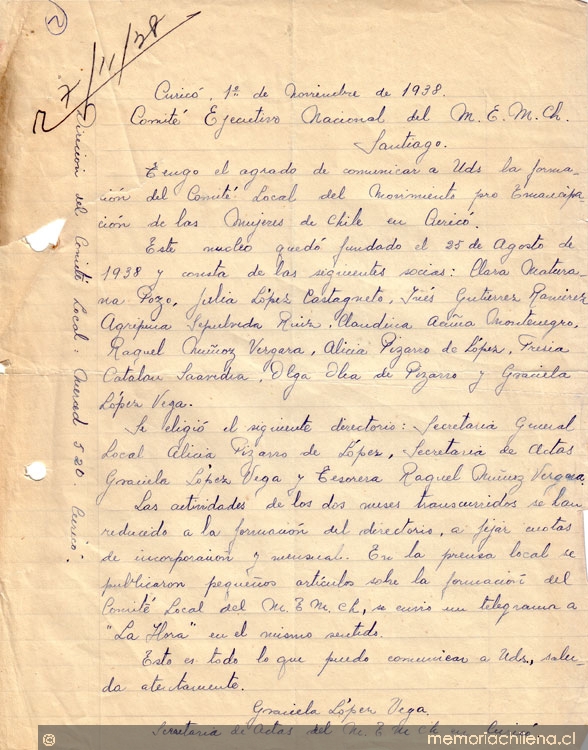 2
7/11/38
Curicó, 1º de Noviembre de 1938.
Comité Ejecutivo Nacional del M. E. M. Ch.
Santiago.
Tengo el agrado de comunicar a Uds la forma-
ción del Comité Local del Movimiento pro Emancipa-
ción de las Mujeres de Chile en Curicó.
Este nucleo quedó fundado el 25 de Agosto de
1938 y consta de las siguientes socias: Clara Matura-
na Pozo, Julia López Castagneto, Inés Gutierrez Ramirez
Agripina Sepulveda Ruiz, Claudina Acuña Montenegro,
Raquel Muñoz Vergara, Alicia Pizarro de López, Fresia
Catalan Saavedra, Olga Olea de Pizarro y Graciela
López Vega.
Se eligió el siguiente directorio: Secretaria General
Local Alicia Pizarro de López, Secretaria de Actas
Graciela López Vega y Tesorera Raquel Muñoz Vergara.
Las actividades de los dos meses transcurridos se han
reducido a la formación del directorio, a fijar cuotas
de incorporación y mensual. En la prensa local se
publicaron pequeños artículos sobre la formación del
Comité Local del M. E. M. Ch., se envio un telegrama a
"La Hora" en el mismo sentido.
Esto es todo lo que puedo comunicar a Uds., salu-
da atentamente.
Graciela López Vega.
Secretaria de Actas del M. E. M. Ch en Curicó.
Dirección del Comité Local: Merced 520 Curicó.
memoriachilena.cl